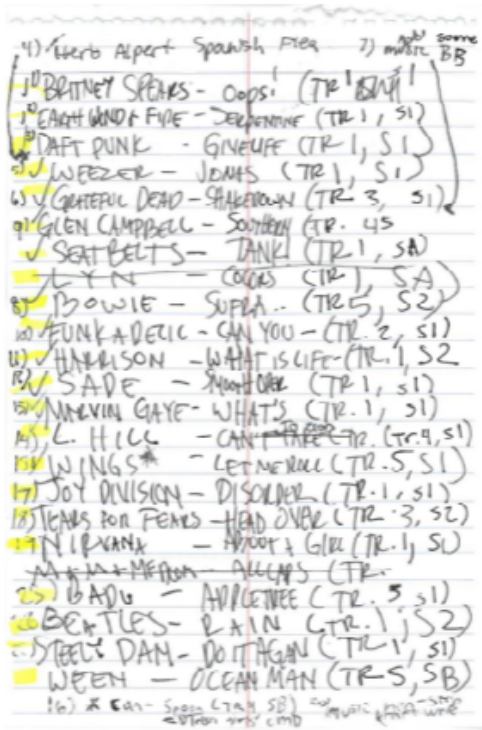 4) Herb Alpert Spanish Flea 7) some BB
1) BRITNEY SPEARS - OOPS! (TR 1
EARTH WIND & FIRE - SERPENTINE (TR 1, S1)
DAFT PUNK - GIVE LIFE (TR 1, S1)
5) WEEZER - JONAS (TR 1, S1)
6) GRATEFUL DEAD - SHAKEDOWN (TR. 3, S1)
9) GLEN CAMPBELL - SOUTHERN (TR. 45
SEATBELTS - TANK! (TR 1, SA)
LYN - COLORS (TR 1, SA)
8) BOWIE - SUFRA.. (TR 5, S2)
10) FUNKADELIC - CAN YOU - (TR. 2, S1)
HARRISON - WHAT IS LIFE - (TR. 1, S2
SADE - SMOOTH OPER (TR 1, S1)
MARVIN GAYE - WHAT'S (TR. 1, S1)
14) L. HILL - CAN'T TAKE (TR. 4, S1)
WINGS * - LET ME ROLL (TR. 5, S1)
17) JOY DIVISION - DISORDER (TR. 1, S1)
18) TEARS FOR FEARS - HEAD OVER (TR. 3, S2)
NIRVANA - ABOUT A GIRL (TR. 1, S1)
- ALL CAPS (TR.
BADU - APPLETREE (TR. 5 S1)
BEATLES - RAIN (TR. 1, S2)
STEELY DAN - DO IT AGAN (TR 1, S1)
WEEN - OCEAN MAN (TR 5, SB)
16) * Can - Spoon (TR 4, SB) music